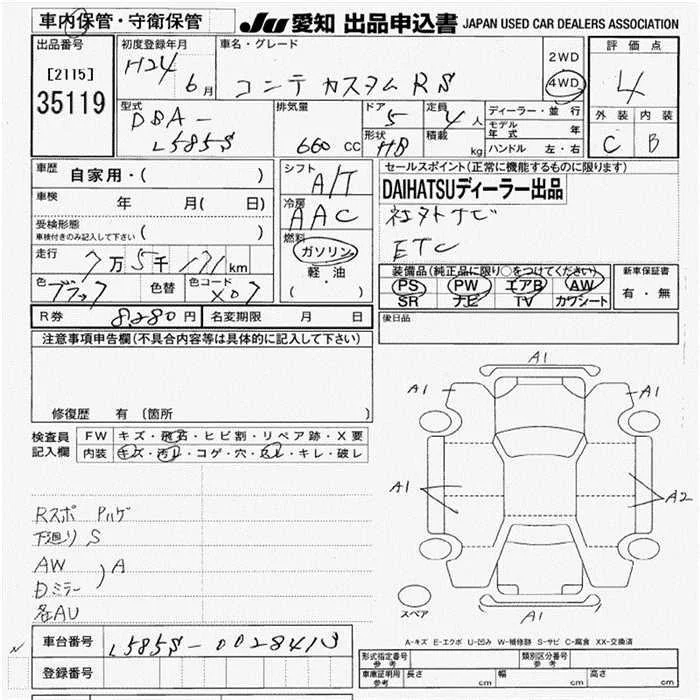 車内保管・守衛保管
JU 愛知 出品申込書 JAPAN USED CAR DEALERS ASSOCIATION
出品番号
[2115]
35119
初度登録年月
H24
6月
車名・グレード
コンテ カスタム RS
2WD
4WD
評価点
4
外装 内装
C B
型式
DBA-
L585S
排気量
660 CC
ドア
5
形状
HB
定員
4人
積載
kg
ディーラー・並行
モデル年式 年
ハンドル 左・右
車歴
自家用・( )
車検
年 月( 日)
受検形態
車検付きのみ記入して下さい ( )
走行
7万5千171km
色 ブラック 色替 色コード X07
シフト
A/T
冷房
AAC
燃料
ガソリン
軽・油
( )
セールスポイント(正常に機能するものに限ります)
DAIHATSUディーラー出品
社外ナビ
ETC
装備品(純正品に限り○をつけてください)
PS PW エアB AW
SR ナビ TV カワシート
新車保証書
有・無
R券 8,280円 名変期限 月 日
後日品
注意事項申告欄(不具合内容等は具体的に記入して下さい)
修復歴 有 [箇所 ]
検査員
記入欄
FW キズ・飛石・ヒビ割・リペア跡・X要
内装 キズ・汚れ・コゲ・穴・スレ・キレ・破レ
Rスポ Pハゲ
下廻り S
AW
Dミラー ) A
各AU
A1
A1
A1
A1
A2
A1
スペア
A-キズ E-エクボ U-凹み W-補修跡 S-サビ C-腐食 XX-交換済
車台番号 L585S-0028413
登録番号
形式指定番号
参考
類別区分番号
参考
車庫証明用
参考
長さ cm 幅 cm 高さ cm